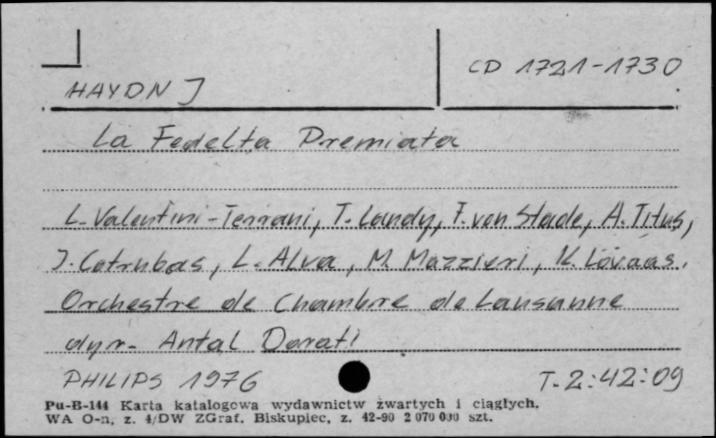 CD 1721-1730
HAYDN J
La Fedelta Premiata
L. Valentini-Terrani, T. Landy, F. von Stade, A. Titus,
I. Cotrubas, L. Alva, M. Mazzieri, K. Lövaas,
Orchestre de Chambre de Lausanne
dyr. Antal Dorati
PHILIPS 1976 T-2:42:09
Pu-B-144 Karta katalogowa wydawnictw zwartych i ciągłych.
WA O-n, z. 4/DW ZGraf. Biskupiec, z. 42-90 2 070 000 szt.